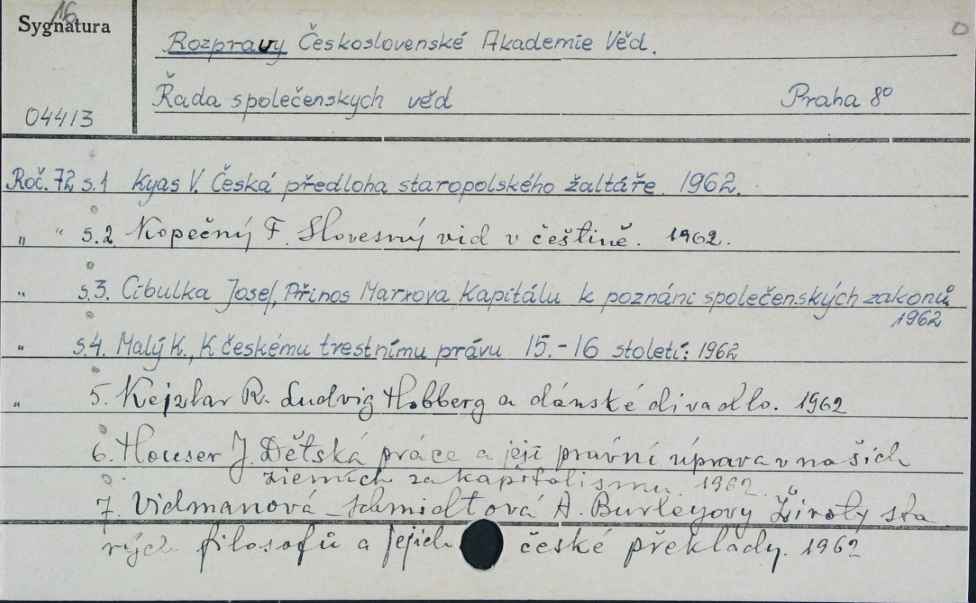 16
Sygnatura
Rozpravy Československé Akademie Věd.
04413
Řada společenskych věd Praha 8°
Roč. 72 s.1 Kyas V. Česká předloha staropolského žaltáře. 1962.
„ „ s.2 Kopečný F. Slovesný vid v češtině. 1962.
„ s.3. Cibulka Josef, Přinos Marxova Kapitálu k poznáni společenských zakonů
1962
„ s.4. Malý K., K českému trestnímu právu 15.-16 století: 1962
„ 5. Kejzlar R. Ludvig Holbberg a dánské divadlo. 1962
6. Houser J. Dětská práce a její pravní úprava v našich
ziemích za kapitolismu. 1962.
7. Vidmanová-Schmidtová A. Burleyovy Životy sta
rých filosofů a jejich české překlady. 1962